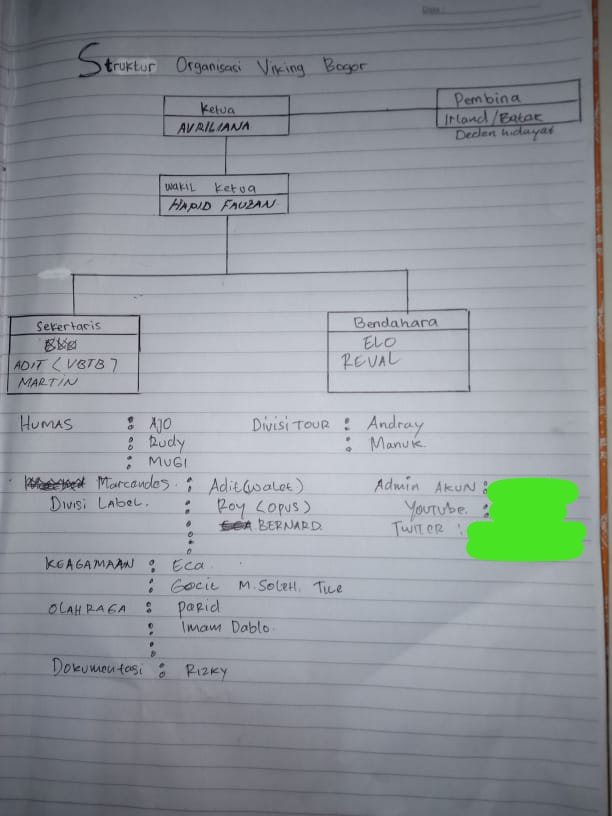 Struktur Organisasi Viking Bogor
Ketua
AVRILIANA
Pembina
Irland/Batak
Deden hidayat
WAKIL Ketua
HAPID FAUZAN
Sekertaris
ADIT (VBTB)
MARTIN
Bendahara
ELO
REVAL
HUMAS : AJO
: Rudy
: MUGI
Divisi TOUR : Andray
: Manuk
Marcandes : Adit(walet)
Divisi LABEL. : Roy (opus)
: BERNARD
:
:
Admin AKUN :
Youtube :
TWITER :
KEAGAMAAN : Eca
: Gocit M.SOLEH. Tile
OLAHRAGA : parid
: Imam Dablo.
:
:
Dokumentasi : RIZKY